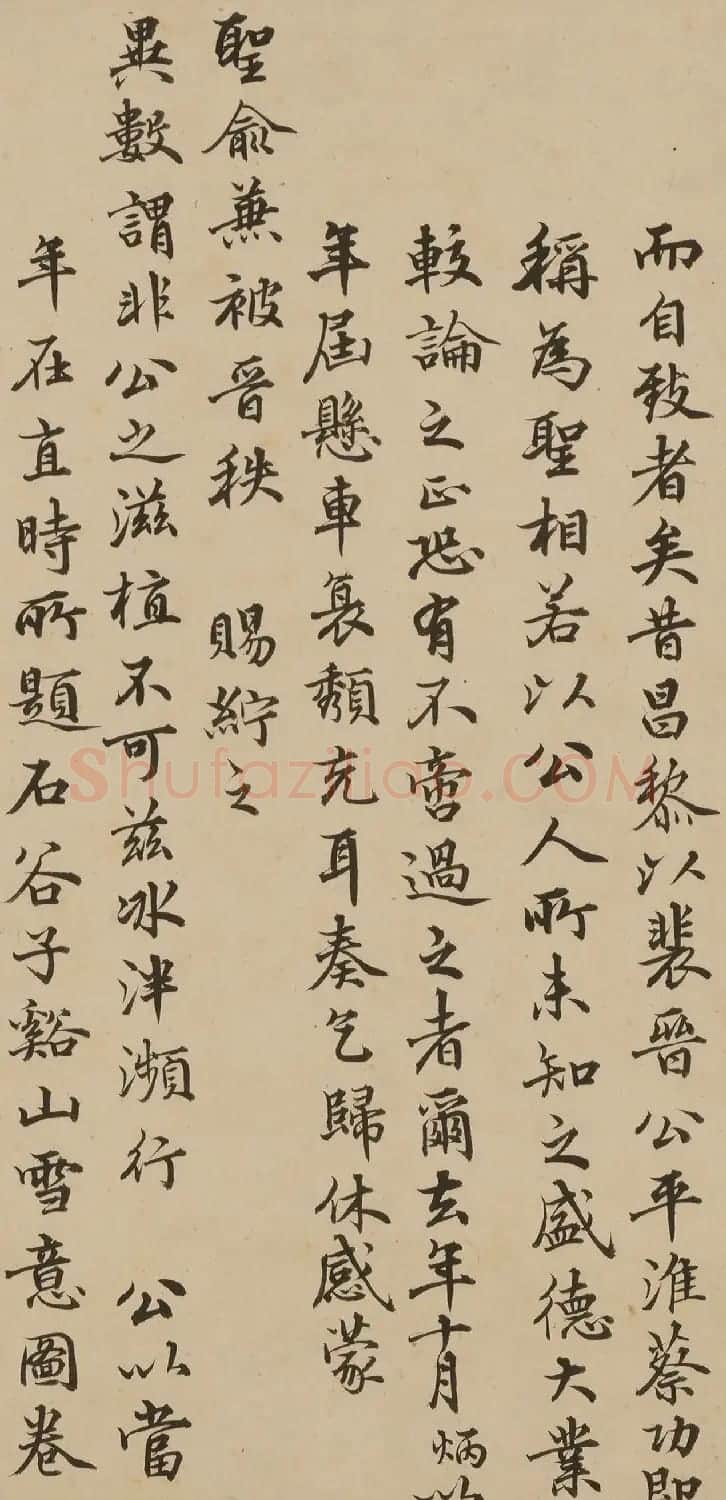 而自致者矣昔昌黎以裴晉公平淮蔡功即
稱為聖相若以公人所未知之盛德大業
較論之正恐有不啻過之者爾去年十月炳以
年屆懸車袁頹充耳奏乞歸休感蒙
聖俞兼被晋秩 賜紵之
異數謂非公之滋植不可茲冰泮瀕行 公以當
年在直時所題石谷子谿山雪意圖卷
Shufaziliao.COM